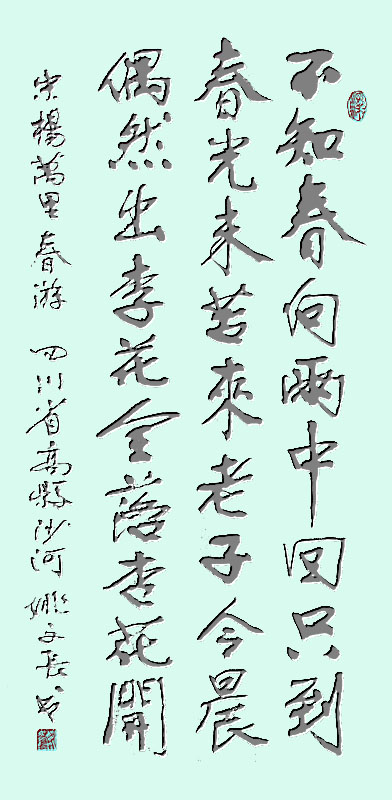 不知春向雨中回只到
春光未苦來老子今晨
偶然出李花全落杏花開
宋楊萬里春游 四川省高縣沙河 文長